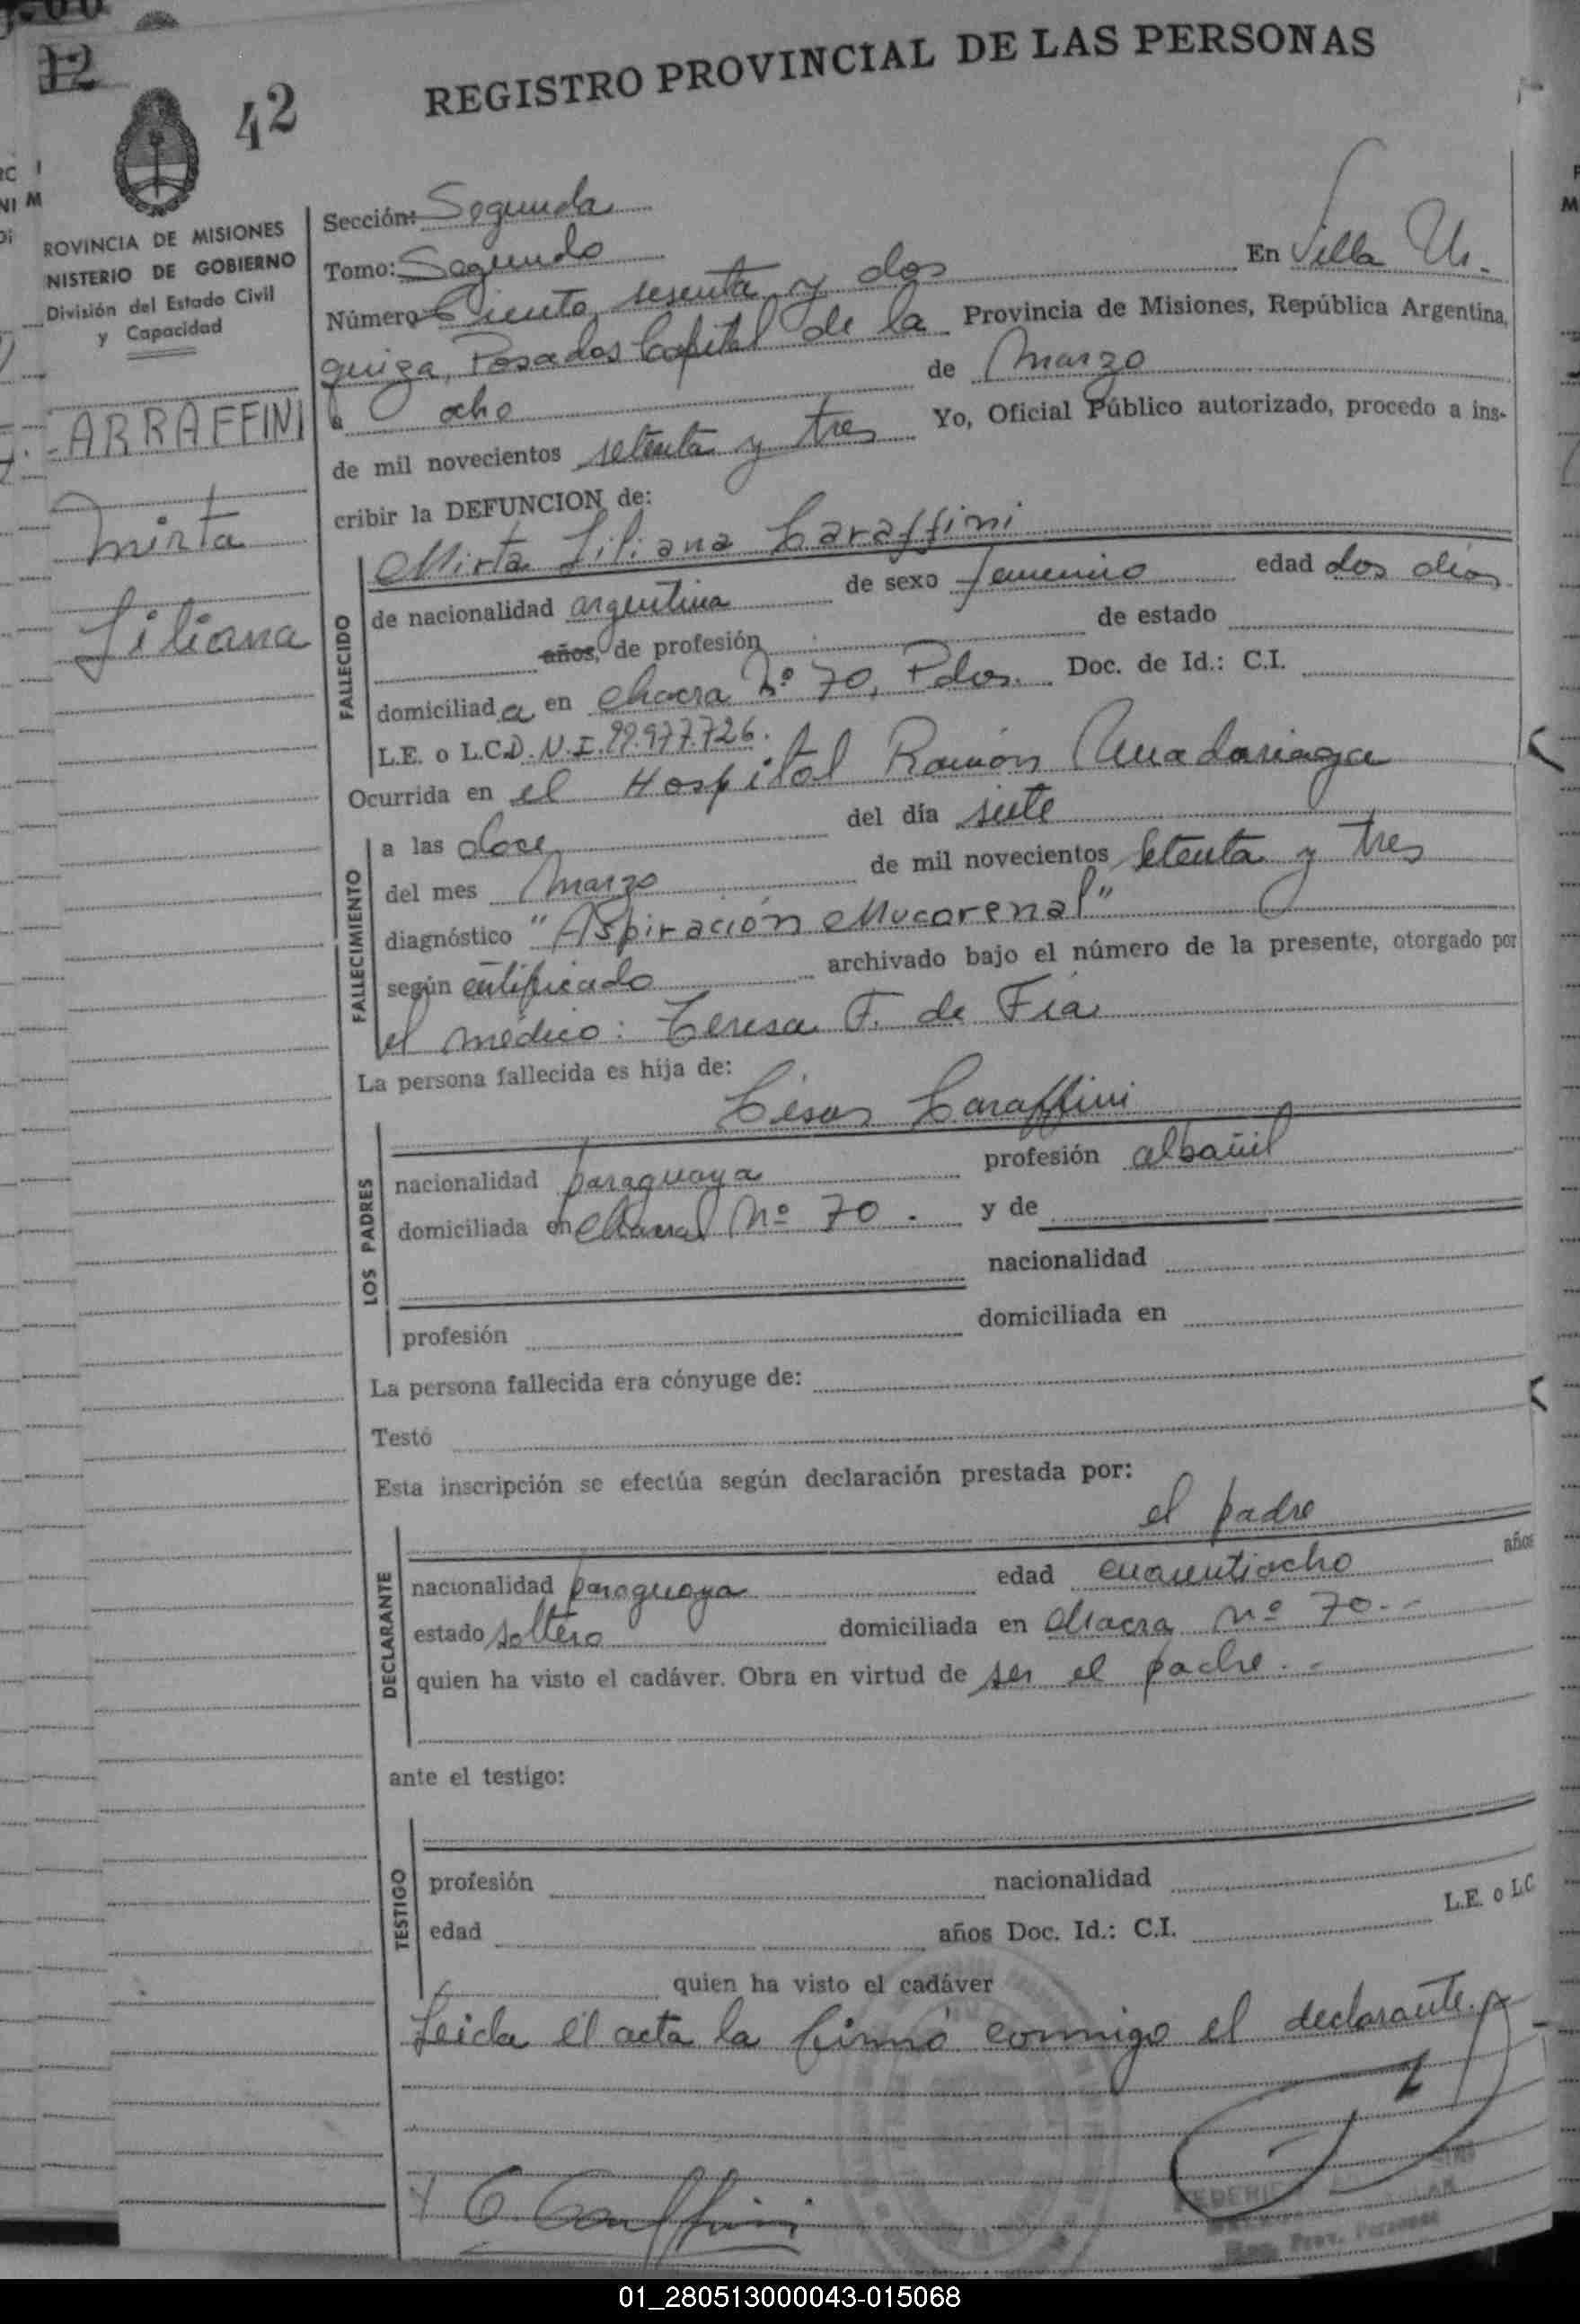 12
42
REGISTRO PROVINCIAL DE LAS PERSONAS
ROVINCIA DE MISIONES
NISTERIO DE GOBIERNO
División del Estado Civil
y Capacidad
ARRAFFINI
Mirta
Liliana
Sección: Segunda
Tomo: Segundo
Número Ciento sesenta y dos En Villa Ur-
quiza, Posadas Capital de la Provincia de Misiones, República Argentina,
a ocho de Marzo
de mil novecientos setenta y tres Yo, Oficial Público autorizado, procedo a ins-
cribir la DEFUNCION de:
Mirta Liliana Caraffini
FALLECIDO
de nacionalidad argentina de sexo femenino edad dos días
años, de profesión de estado
domiciliada en chacra Nº 70, Pdas. Doc. de Id.: C.I.
L.E. o L.C. D.N.I. 99.977.726.
Ocurrida en el Hospital Ramón Madariaga
FALLECIMIENTO
a las doce del día siete
del mes Marzo de mil novecientos setenta y tres
diagnóstico "Aspiración Mucorenal"
según certificado archivado bajo el número de la presente, otorgado por
el médico: Teresa F. de Fía
La persona fallecida es hija de:
César Caraffini
LOS PADRES
nacionalidad paraguaya profesión albañil
domiciliada en Nº 70. y de
nacionalidad
profesión domiciliada en
La persona fallecida era cónyuge de:
Testó
Esta inscripción se efectúa según declaración prestada por:
el padre
DECLARANTE
nacionalidad paraguaya edad cuarentiocho años
estado soltero domiciliada en chacra nº 70.-
quien ha visto el cadáver. Obra en virtud de ser el padre.-
ante el testigo:
TESTIGO
profesión nacionalidad
edad años Doc. Id.: C.I. L.E. o L.C
quien ha visto el cadáver
Leida el acta la firmó conmigo el declarante.
C. Caraffini
01_280513000043-015068